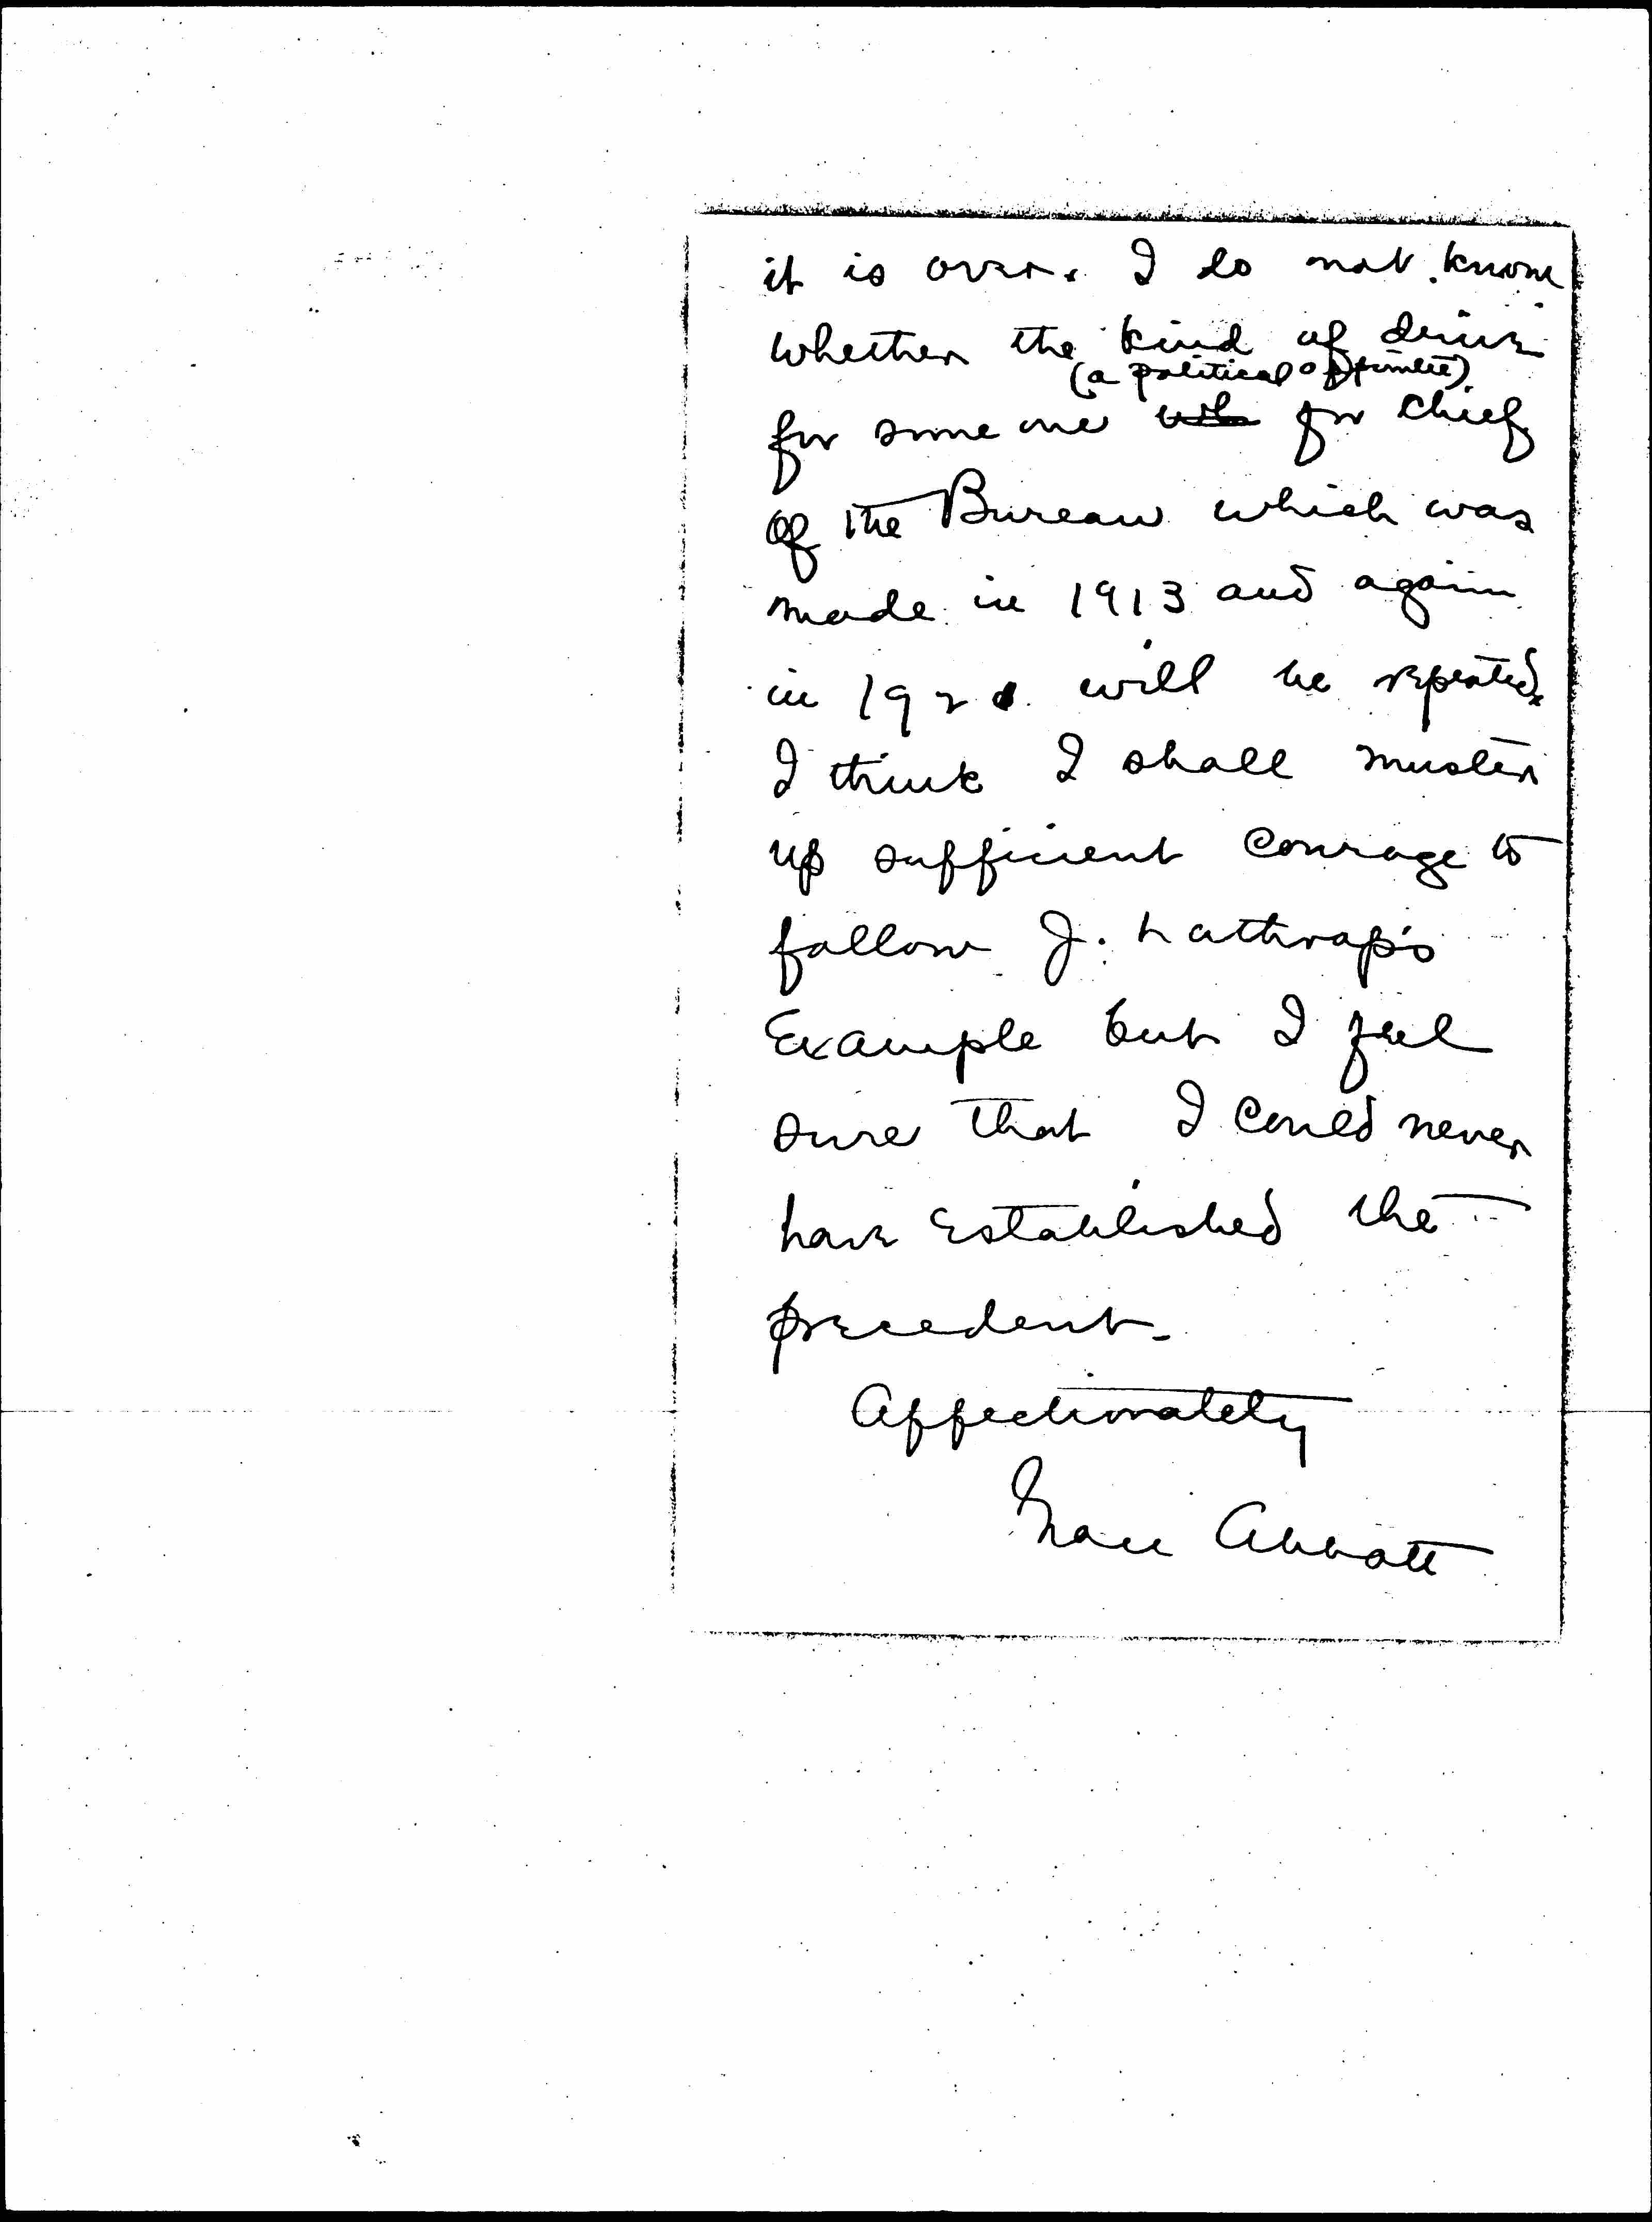 it is over. I do not know
whether the kind of drive
(a political appointee)
for some one for chief
of the Bureau which was
made in 1913 and again
in 1921 will be repeated.
I think I shall muster
up sufficient courage to
follow J. Lathrop's
Example but I feel
sure that I could never
have established the
precedent.
Affectionately
Grace Abbott